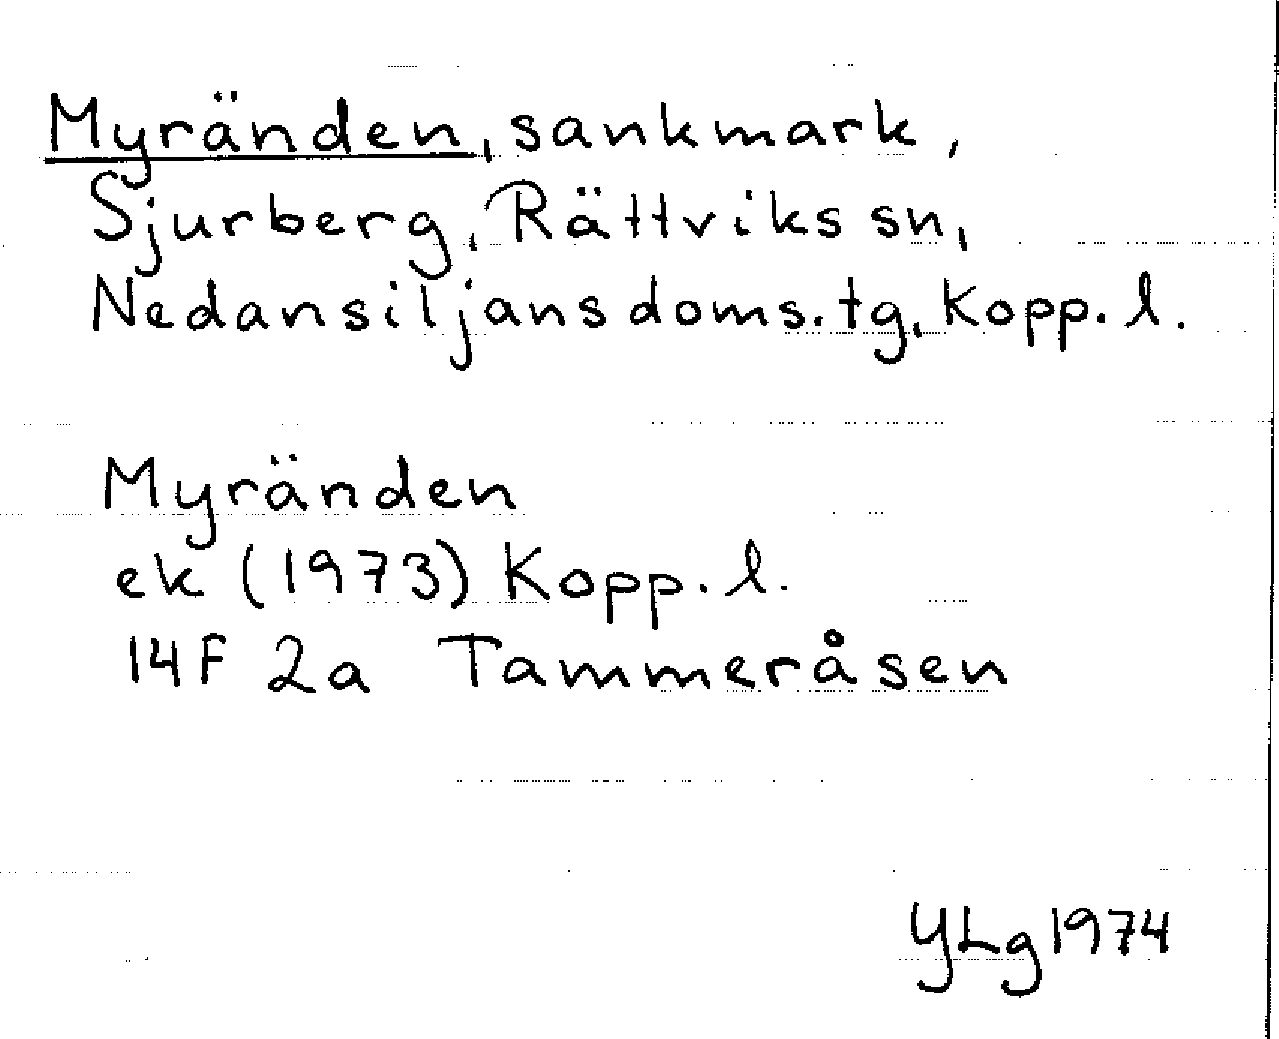 Myränden, sankmark,
Sjurberg, Rättviks sn,
Nedansiljans doms.tg, Kopp. l.
Myränden
ek (1973) Kopp. l.
14F 2a Tammeråsen
YLg 1974